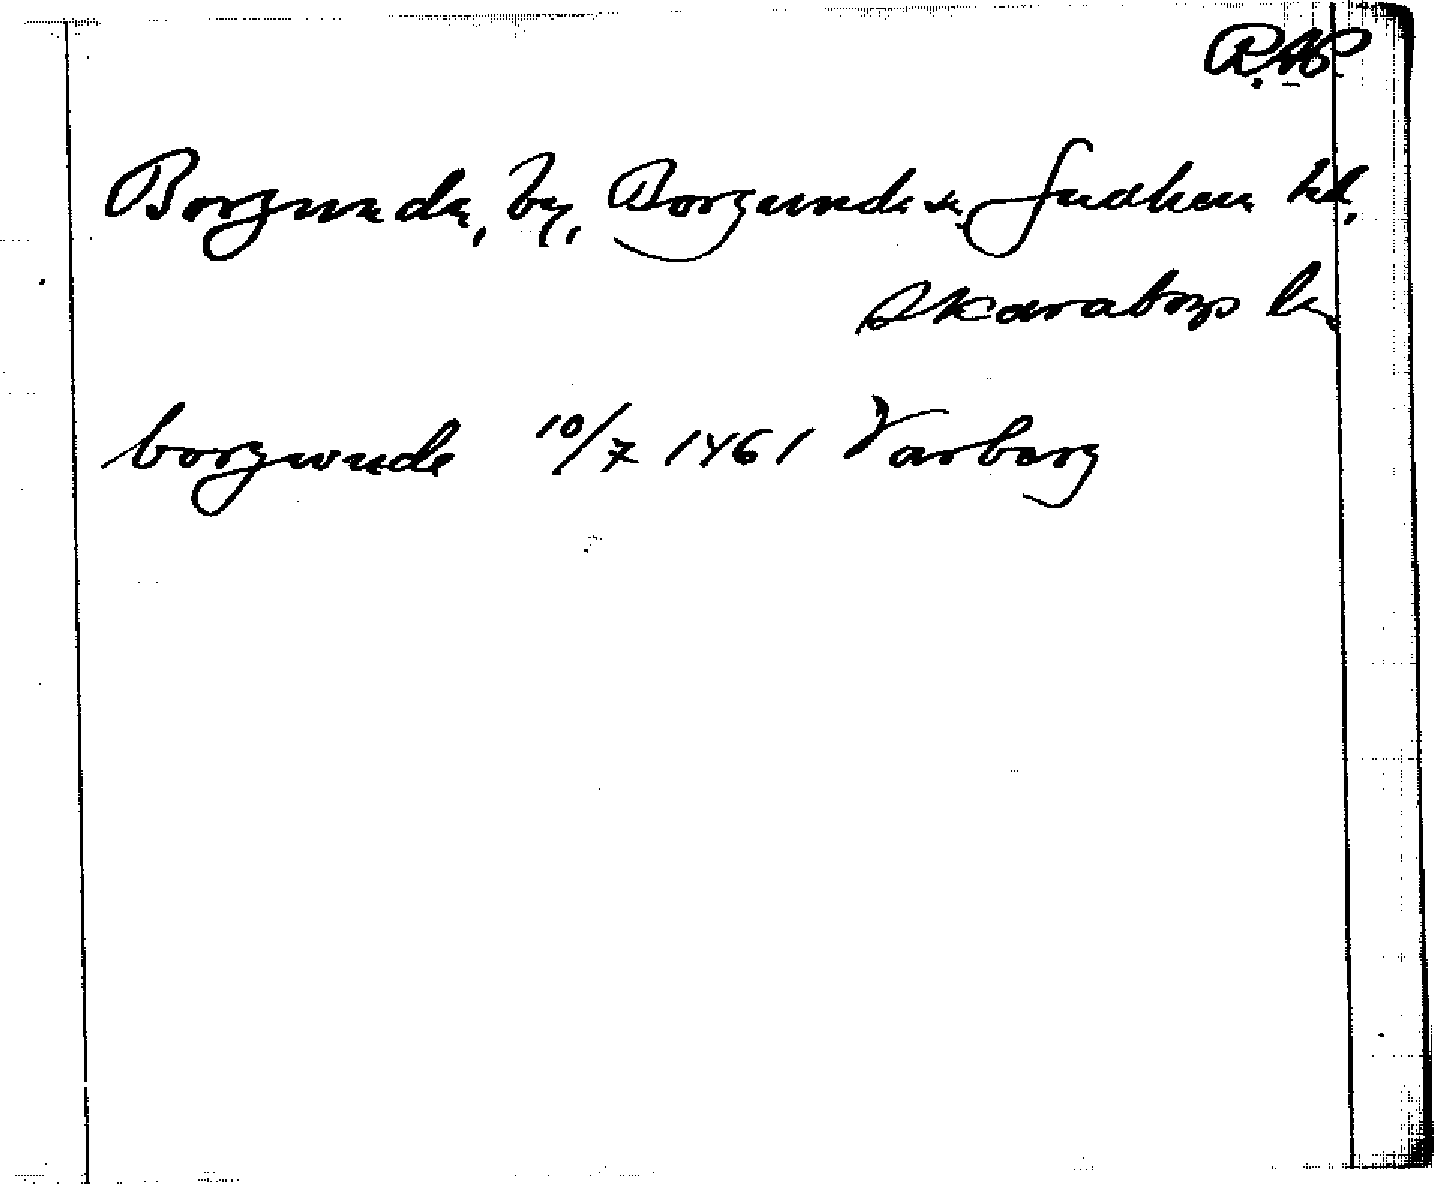 R.AP.
Borgunda, by, Borgunda sn. Gudhem hd.
Skaraborgs län
borgwnde 10/7 1461 Varberg